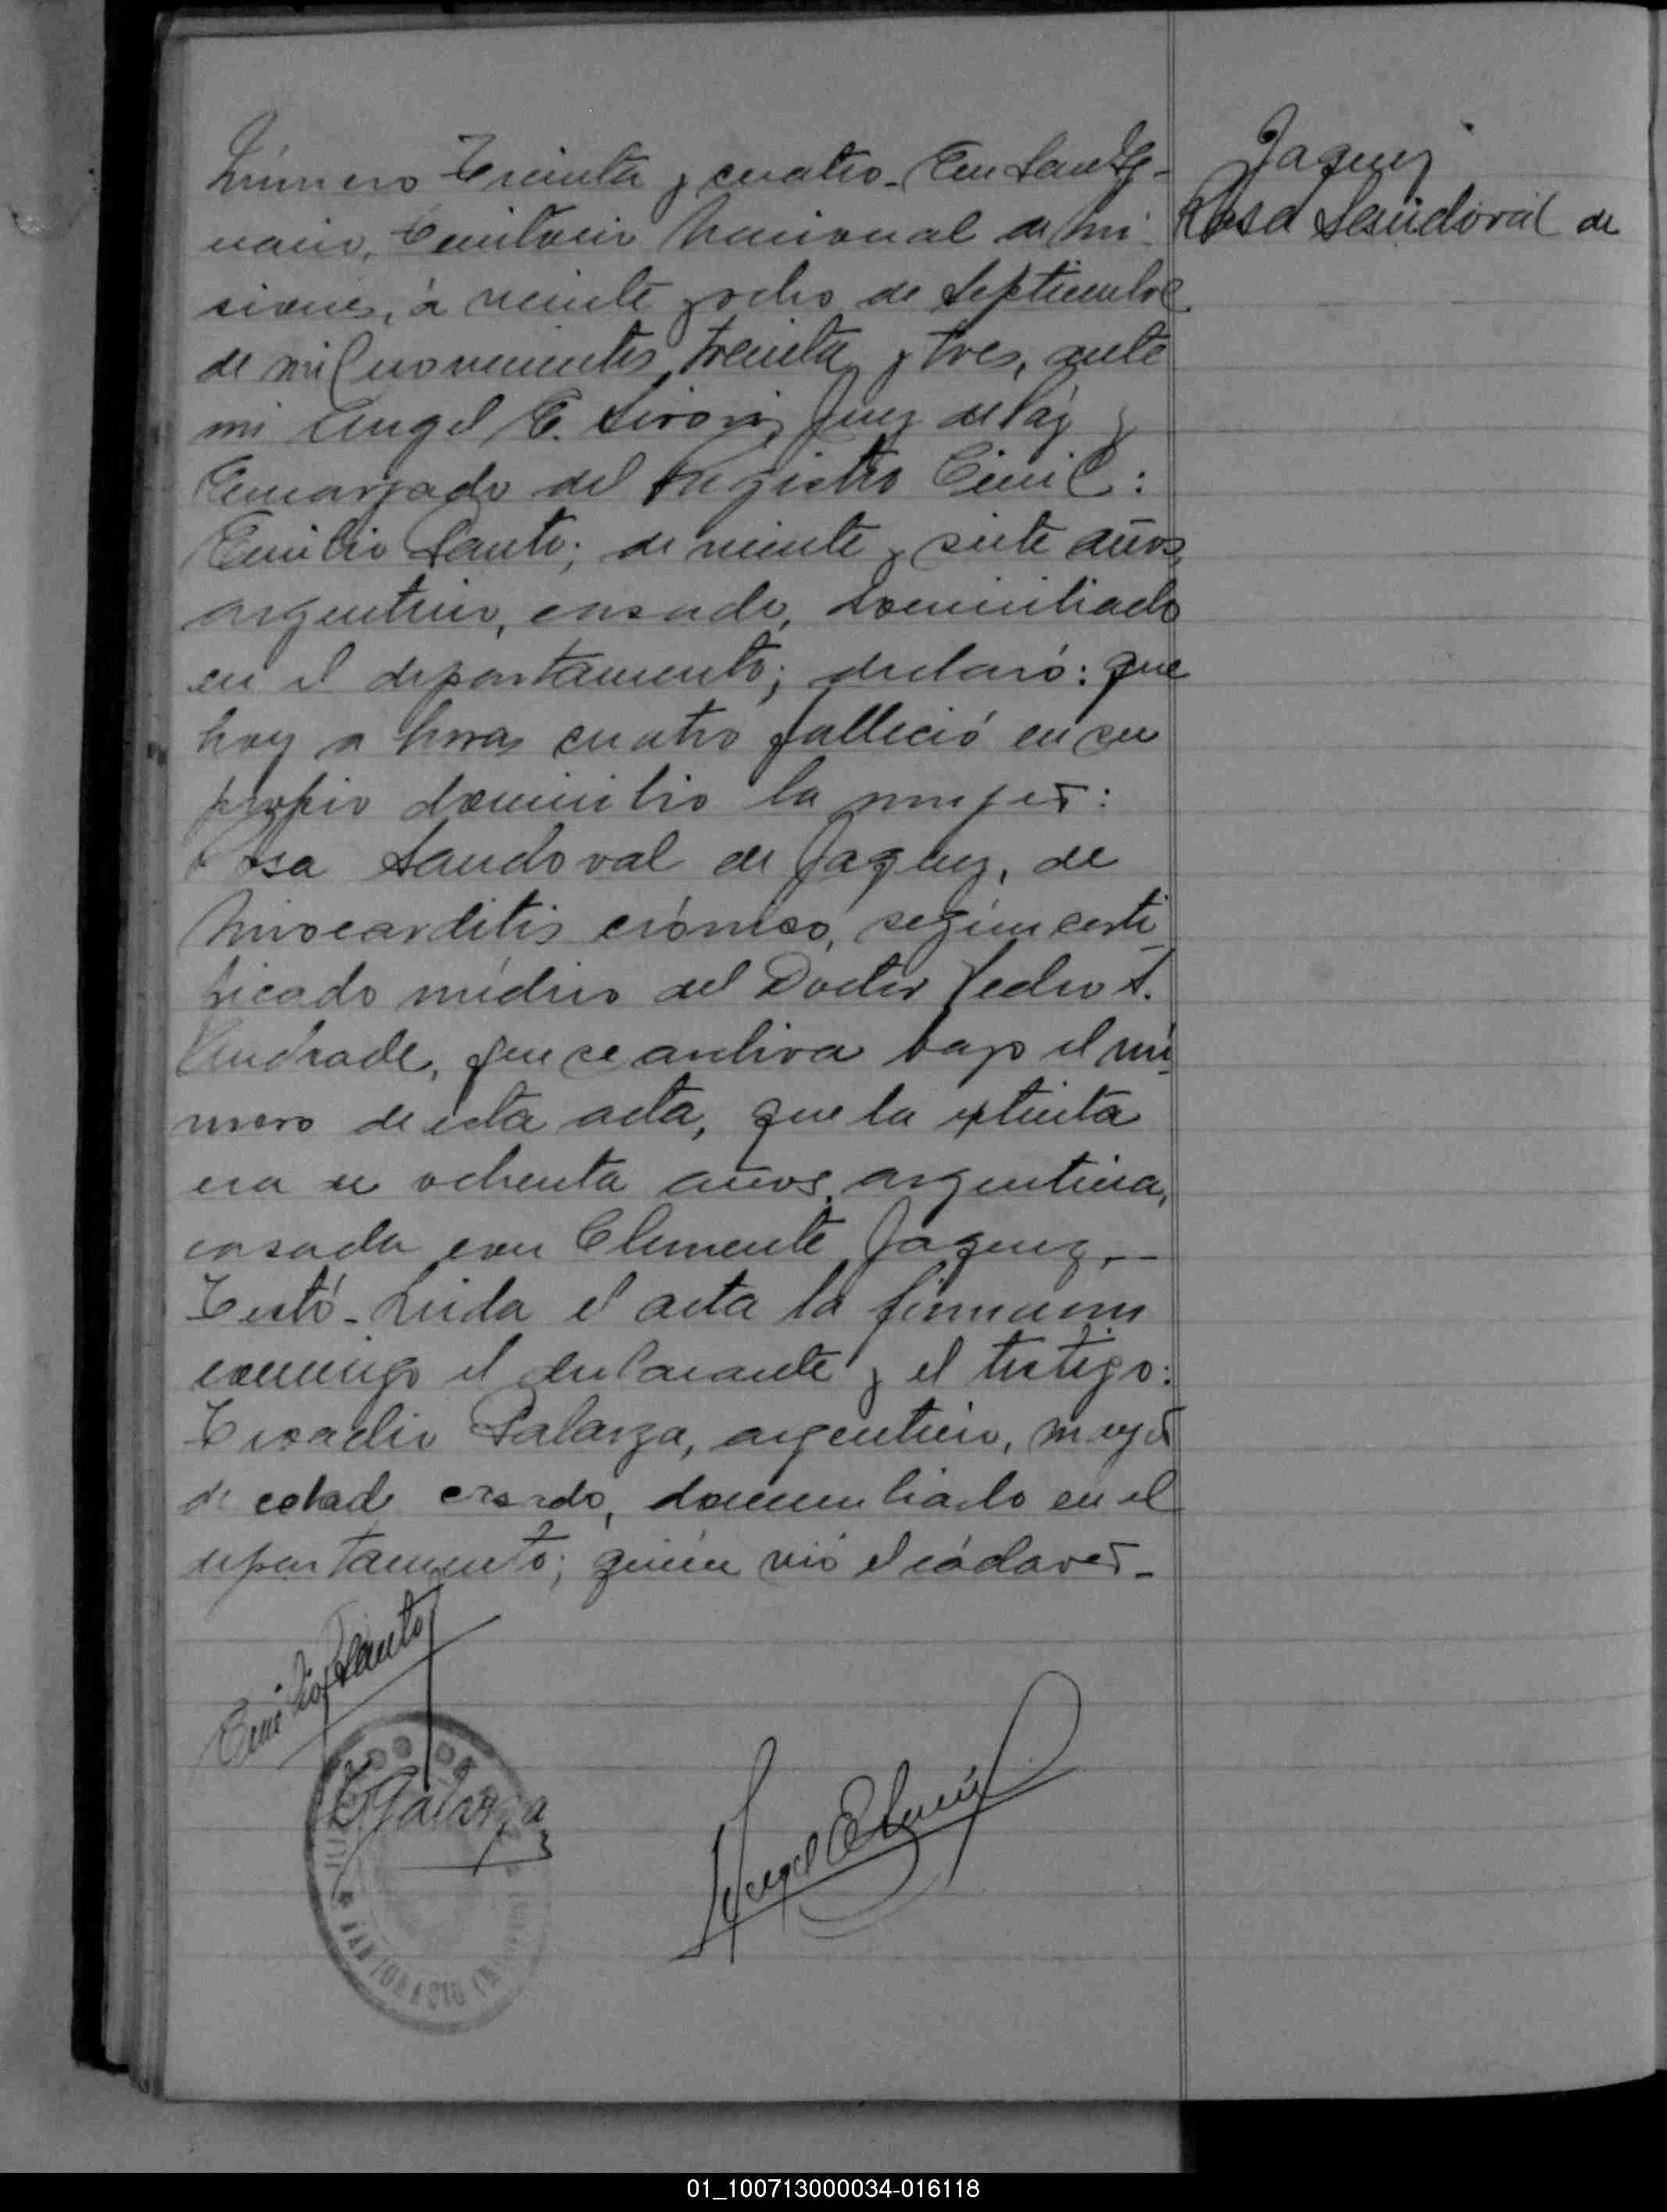 Número treinta y cuatro. En San Ig-
nacio, Territorio Nacional de Mi-
siones, á veinte y ocho de Septiembre
de mil novecientos treinta y tres, ante
mi Angel E. Juez de Paz y
Encargado del Registro Civil:
Emilio Santo; de veinte y siete años,
argentino, casado, domiciliado
en el departamento; declaró: que
hoy a horas cuatro falleció en su
propio domicilio la mujer:
Rosa Sandoval de Jaquez, de
Miocarditis crónica, según certi-
ficado médico del Doctor Pedro A.
Andrade, que se archiva bajo el nú-
mero de esta acta, que la extinta
era de ochenta años, argentina,
casada con Clemente Jaquez,-
Testó- Leida el acta la firmaron
conmigo el declarante y el testigo:
Galarza, argentino, mayor
de edad casado, domiciliado en el
departamento; quién vió el cadaver-
Jaquez
Rosa Sandoval de
Emilio Santo
Galarza
Angel E.
01_100713000034-016118